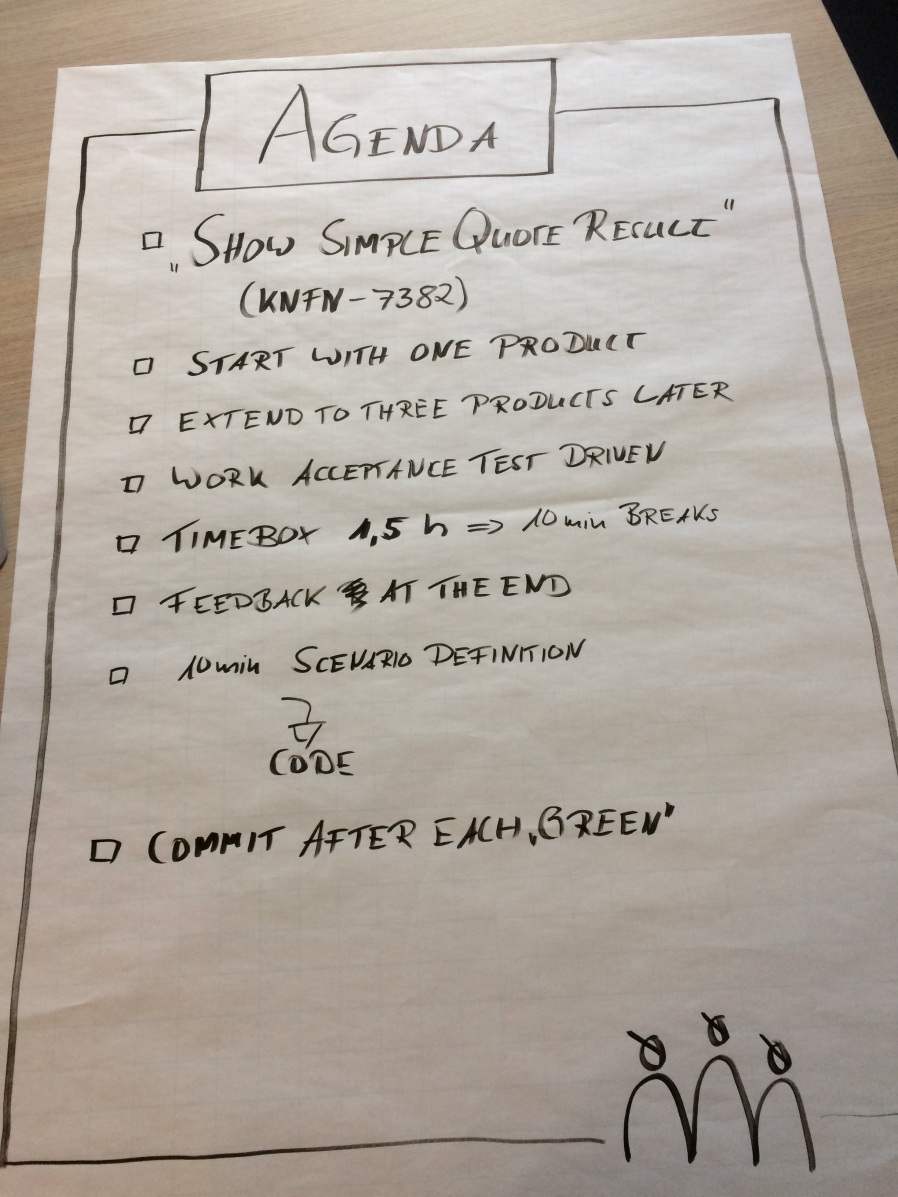 AGENDA
„SHOW SIMPLE QUOTE RESULT"
(KNFN-7382)
START WITH ONE PRODUCT
EXTEND TO THREE PRODUCTS LATER
WORK ACCEPTANCE TEST DRIVEN
TIMEBOX 1,5 h => 10 min BREAKS
FEEDBACK AT THE END
10 min SCENARIO DEFINITION
CODE
COMMIT AFTER EACH „GREEN"